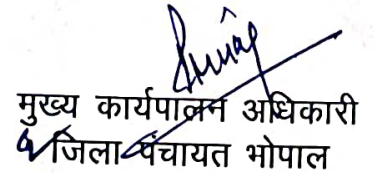 मुख्य कार्यपालन अधिकारी
जिला पंचायत भोपाल